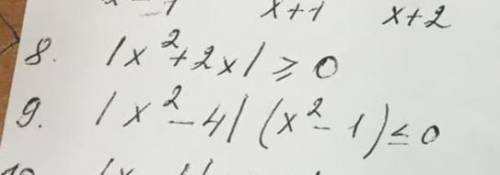 x+1 x+2
8. |x²+2x| ≥ 0
9. |x²-4| (x²-1) ≤ 0